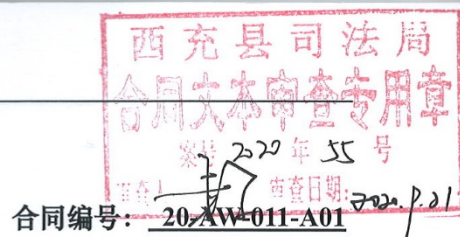 西充县司法局
合同文本审查专用章
案号 2020 年 55 号
审查日期: 2020.9.21
合同编号: 20-AW-011-A01